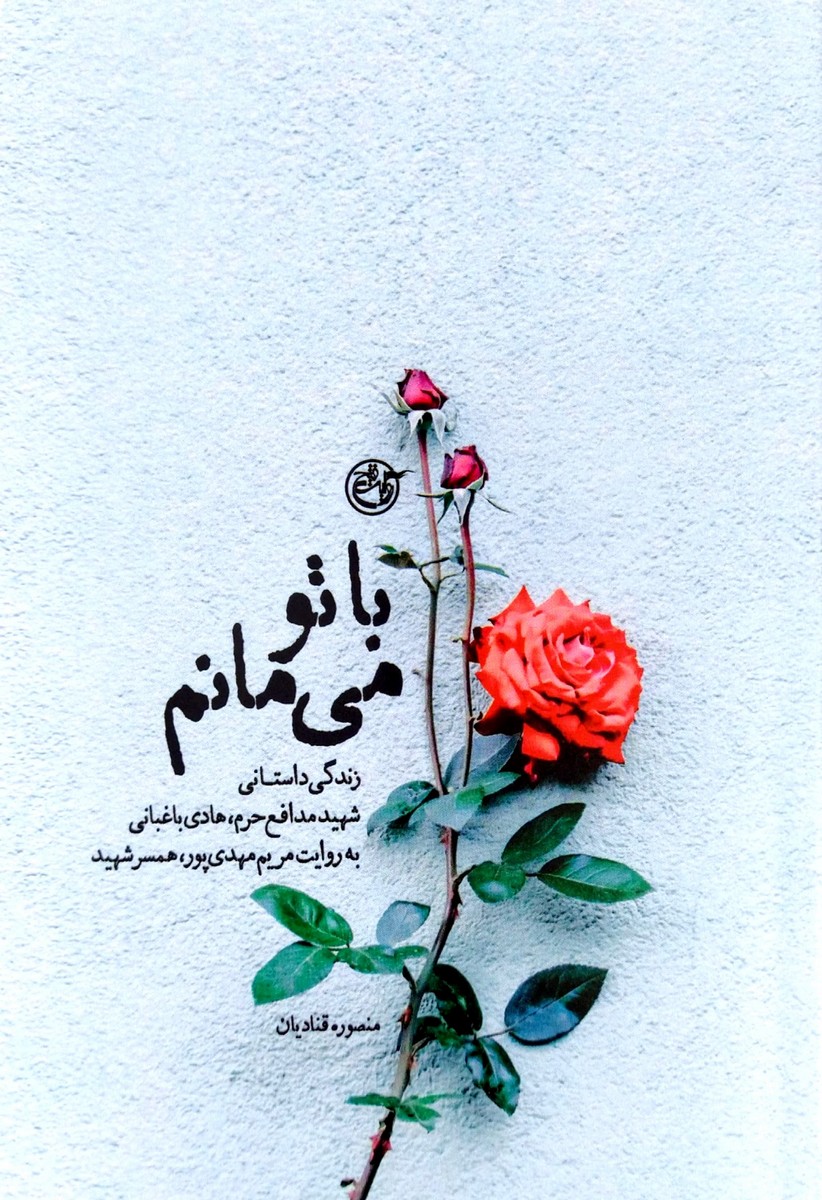 روایت فتح
با تو
می‌مانم
زندگی داستانی
شهید مدافع حرم، هادی باغبانی
به روایت مریم مهدی‌پور، همسر شهید
منصوره قنادیان